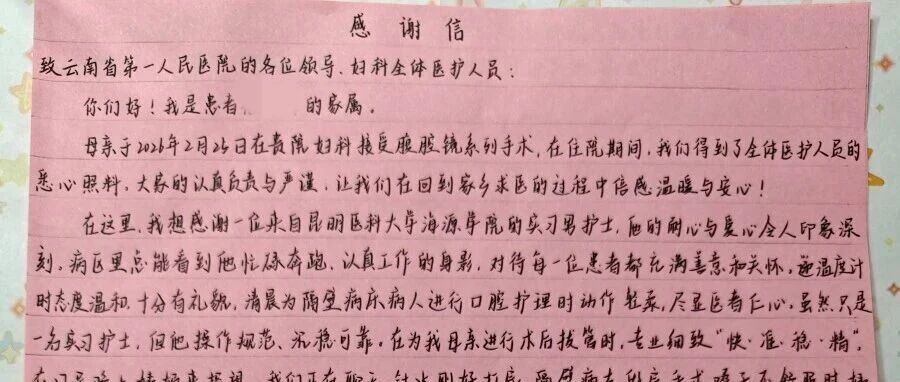 感谢信
致云南省第一人民医院的各位领导、妇科全体医护人员：
你们好！我是患者 的家属。
母亲于2026年2月25日在贵院妇科接受腹腔镜系列手术，在住院期间，我们得到了全体医护人员的
悉心照料，大家的认真负责与严谨，让我们在回到家乡求医的过程中倍感温暖与安心！
在这里，我想感谢一位来自昆明医科大学海源学院的实习男护士，他的耐心与爱心令人印象深
刻。病区里总能看到他忙碌奔跑、认真工作的身影，对待每一位患者都充满善意和关怀，递温度计
时态度温和，十分有礼貌，清晨为隔壁病床病人进行口腔护理时动作轻柔，尽显医者仁心。虽然只是
一名实习护士，但他操作规范、沉稳可靠。在为我母亲进行术后拔管时，专业细致“快·准·稳·精”，